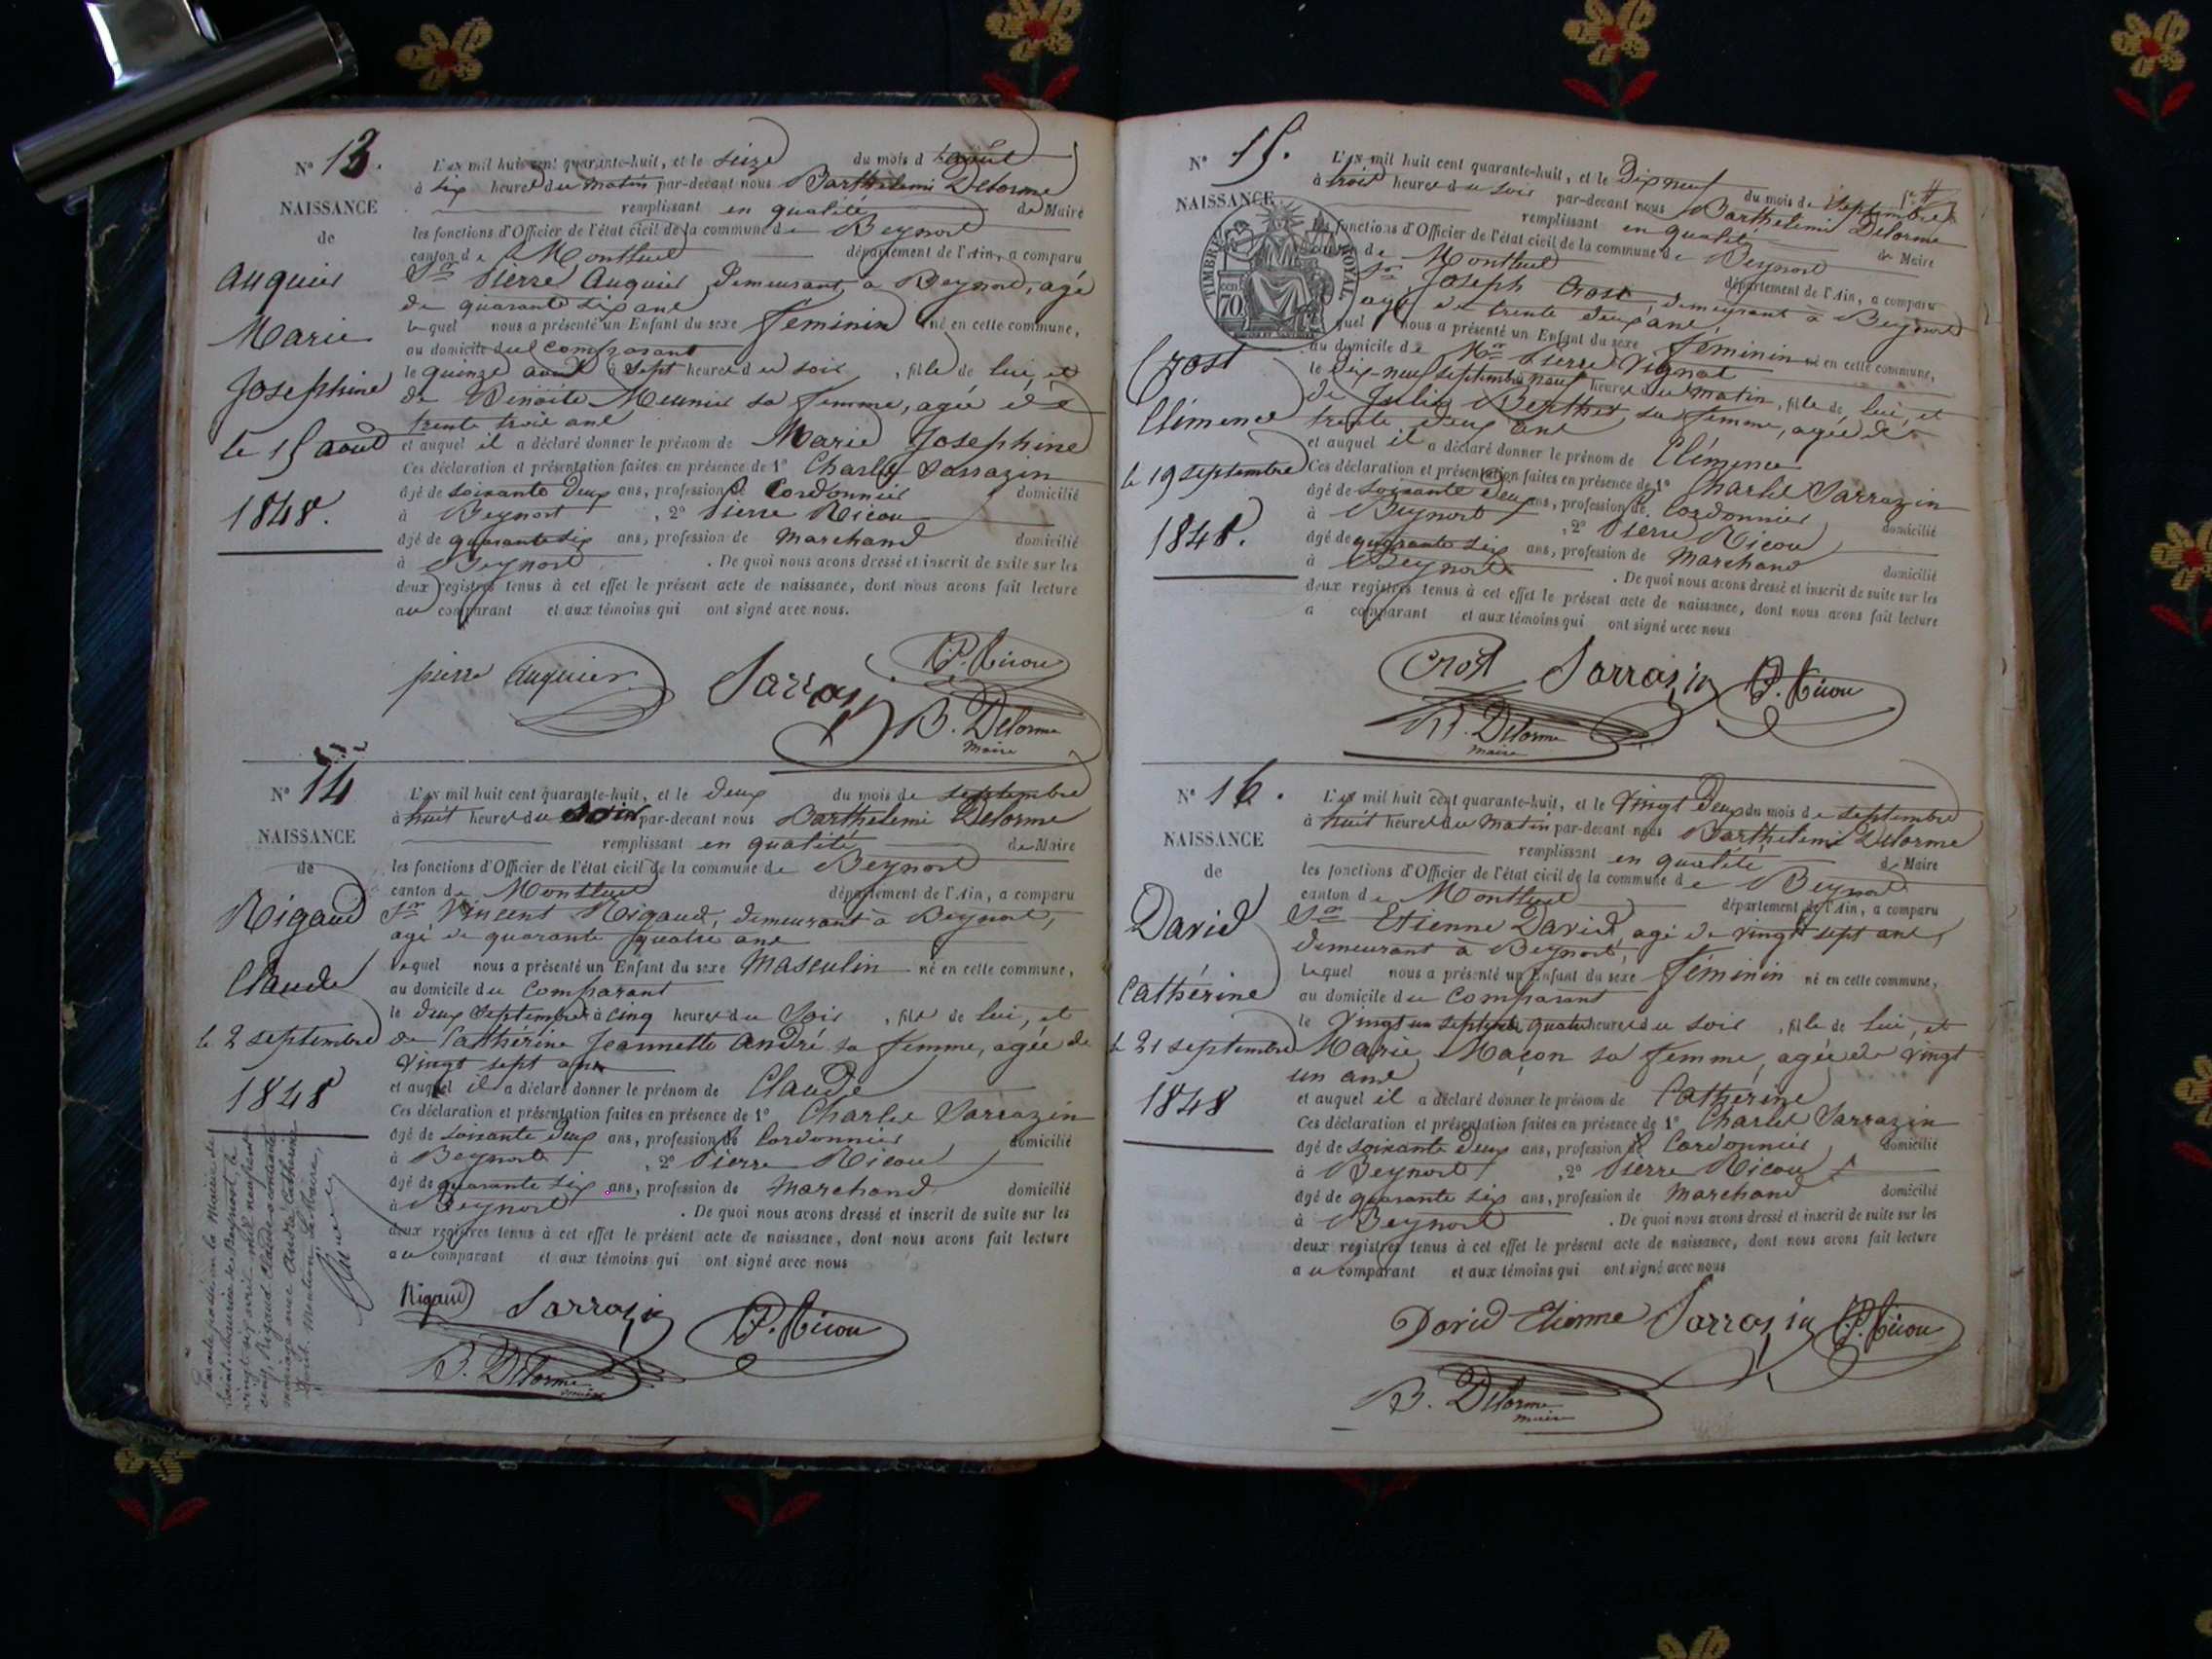 N° 13.
NAISSANCE
de
Auguier
Marie
Josephine
le 15 août
1848.
L'an mil huit cent quarante-huit, et le seize du mois d'août
à six heures du matin par-devant nous Barthelemi Delorme
remplissant en qualité de Maire
les fonctions d'Officier de l'état civil de la commune de Beynost
canton de Montluel département de l'Ain, a comparu
Sr Pierre Auguier, demeurant à Beynost, agé
de quarante six ans
lequel nous a présenté un Enfant du sexe féminin né en cette commune,
au domicile du comparant
le quinze août à sept heures du soir, fille de lui, et
de Benoite Meunier sa femme, agée de
trente trois ans
et auquel il a déclaré donner le prénom de Marie Josephine
Ces déclaration et présentation faites en présence de 1° Charles Sarrazin
âgé de soixante deux ans, profession de Cordonnier domicilié
à Beynost, 2° Pierre Nicou
âgé de quarante six ans, profession de Marchand domicilié
à Beynost. De quoi nous avons dressé et inscrit de suite sur les
deux registres tenus à cet effet le présent acte de naissance, dont nous avons fait lecture
au comparant et aux témoins qui ont signé avec nous.
pierre auguier Sarrasin P. Nicou
B. Delorme
maire
N° 14
NAISSANCE
de
Rigaud
Claude
le 2 septembre
1848
L'an mil huit cent quarante-huit, et le deux du mois de septembre
à huit heures du soir par-devant nous Barthelemi Delorme
remplissant en qualité de Maire
les fonctions d'Officier de l'état civil de la commune de Beynost
canton de Montluel département de l'Ain, a comparu
Sr Vincent Rigaud, demeurant à Beynost,
agé de quarante quatre ans
lequel nous a présenté un Enfant du sexe Masculin né en cette commune,
au domicile du comparant
le deux septembre à cinq heures du soir, fils de lui, et
de Cathérine Jeannette André sa femme, agée de
vingt sept ans
et auquel il a déclaré donner le prénom de Claude
Ces déclaration et présentation faites en présence de 1° Charles Sarrazin
âgé de soixante deux ans, profession de Cordonnier domicilié
à Beynost, 2° Pierre Nicou
âgé de quarante six ans, profession de Marchand domicilié
à Beynost. De quoi nous avons dressé et inscrit de suite sur les
deux registres tenus à cet effet le présent acte de naissance, dont nous avons fait lecture
au comparant et aux témoins qui ont signé avec nous
Rigaud Sarrasin P. Nicou
B. Delorme
maire
Par acte passé en la Mairie de
Saint Maurice de Beynost, le
vingt six avril mil neuf cent
Rigaud Claude a contracté
mariage avec André Catherine
Mention Le Maire,
N° 15.
NAISSANCE
TIMBRE ROYAL
70 cen
Crost
Clémence
le 19 septembre
1848.
L'an mil huit cent quarante-huit, et le dix neuf du mois de septembre
à trois heures du soir par-devant nous Barthelemi Delorme
remplissant en qualité de Maire
les fonctions d'Officier de l'état civil de la commune de Beynost
canton de Montluel département de l'Ain, a comparu
Sr Joseph Crost, demeurant à Beynost
agé de trente deux ans,
lequel nous a présenté un Enfant du sexe féminin né en cette commune,
au domicile de Mr Pierre Vignat
le dix-neuf septembre neuf heures du matin, fille de lui, et
de Julie Berthet sa femme, agée de
trente deux ans
et auquel il a déclaré donner le prénom de Clémence
Ces déclaration et présentation faites en présence de 1° Charles Sarrazin
âgé de soixante deux ans, profession de Cordonnier domicilié
à Beynost, 2° Pierre Nicou
âgé de quarante six ans, profession de Marchand domicilié
à Beynost. De quoi nous avons dressé et inscrit de suite sur les
deux registres tenus à cet effet le présent acte de naissance, dont nous avons fait lecture
a comparant et aux témoins qui ont signé avec nous
Crost Sarrasin P. Nicou
B. Delorme
maire
N° 16.
NAISSANCE
de
David
Cathérine
le 21 septembre
1848
L'an mil huit cent quarante-huit, et le vingt deux du mois de septembre
à huit heures du matin par-devant nous Barthelemi Delorme
remplissant en qualité de Maire
les fonctions d'Officier de l'état civil de la commune de Beynost
canton de Montluel département de l'Ain, a comparu
Sr Etienne David, agé de vingt sept ans,
demeurant à Beynost,
lequel nous a présenté un Enfant du sexe féminin né en cette commune,
au domicile du comparant
le vingt un septembre quatre heures du soir, fille de lui, et
Marie Maçon sa femme, agée de vingt
un ans
et auquel il a déclaré donner le prénom de Cathérine
Ces déclaration et présentation faites en présence de 1° Charles Sarrazin
âgé de soixante deux ans, profession de Cordonnier domicilié
à Beynost, 2° Pierre Nicou
âgé de quarante six ans, profession de Marchand domicilié
à Beynost. De quoi nous avons dressé et inscrit de suite sur les
deux registres tenus à cet effet le présent acte de naissance, dont nous avons fait lecture
au comparant et aux témoins qui ont signé avec nous
David Etienne Sarrasin P. Nicou
B. Delorme
maire